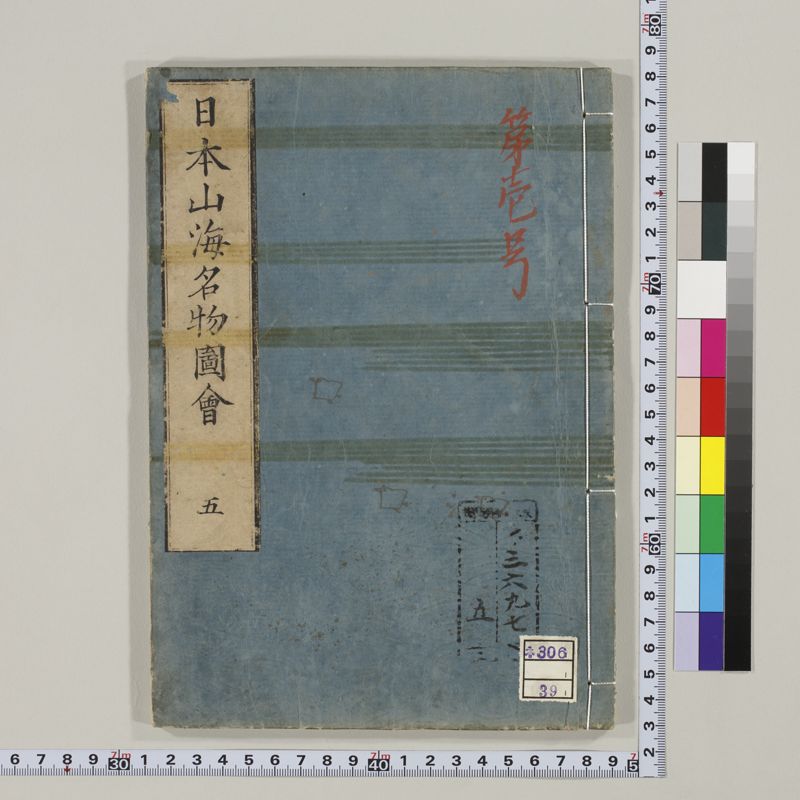 日本山海名物圖會
五
第壱号
三六九七
五
306
39
6 7 8 9 30 1 2 3 4 5 6 7 8 9 40 1 2 3 4 5 6 7 8 9 5
9 8 7 6 5 4 3 2 1 70 9 8 7 6 5 4 3 2 1 60 9 8 7 6 5 4 3 2